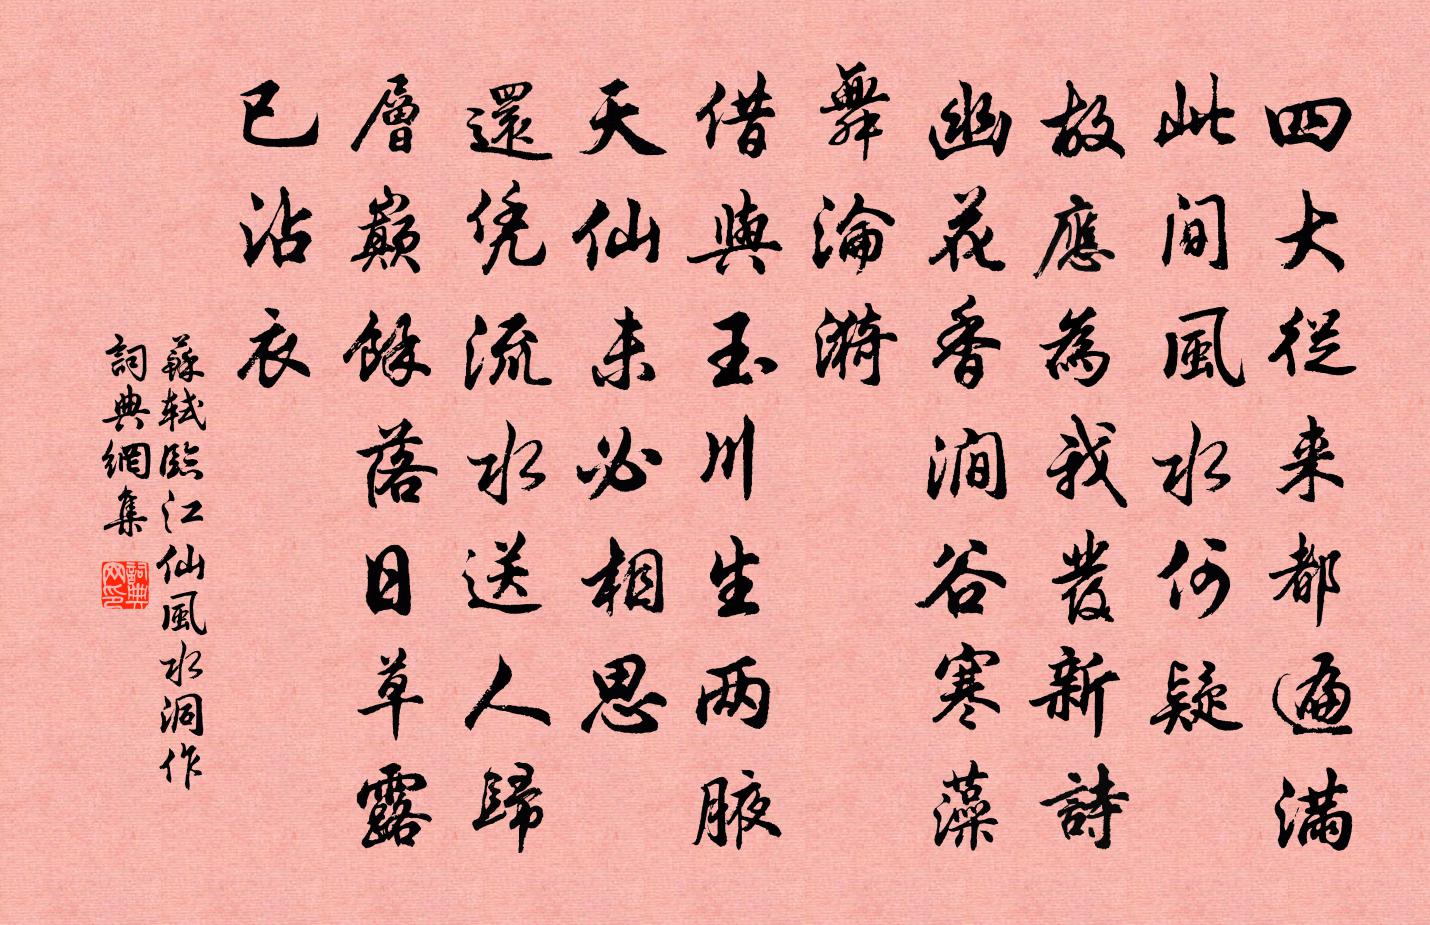 四大従来都遍满
此间風水何疑
故應為我發新詩
幽花香澗谷寒藻
舞淪漪
借與玉川生两腋
天仙未必相思
還凭流水送人歸
層巔餘落日草露
已沾衣
蘇軾臨江仙風水洞作
詞典網集
詞典网印